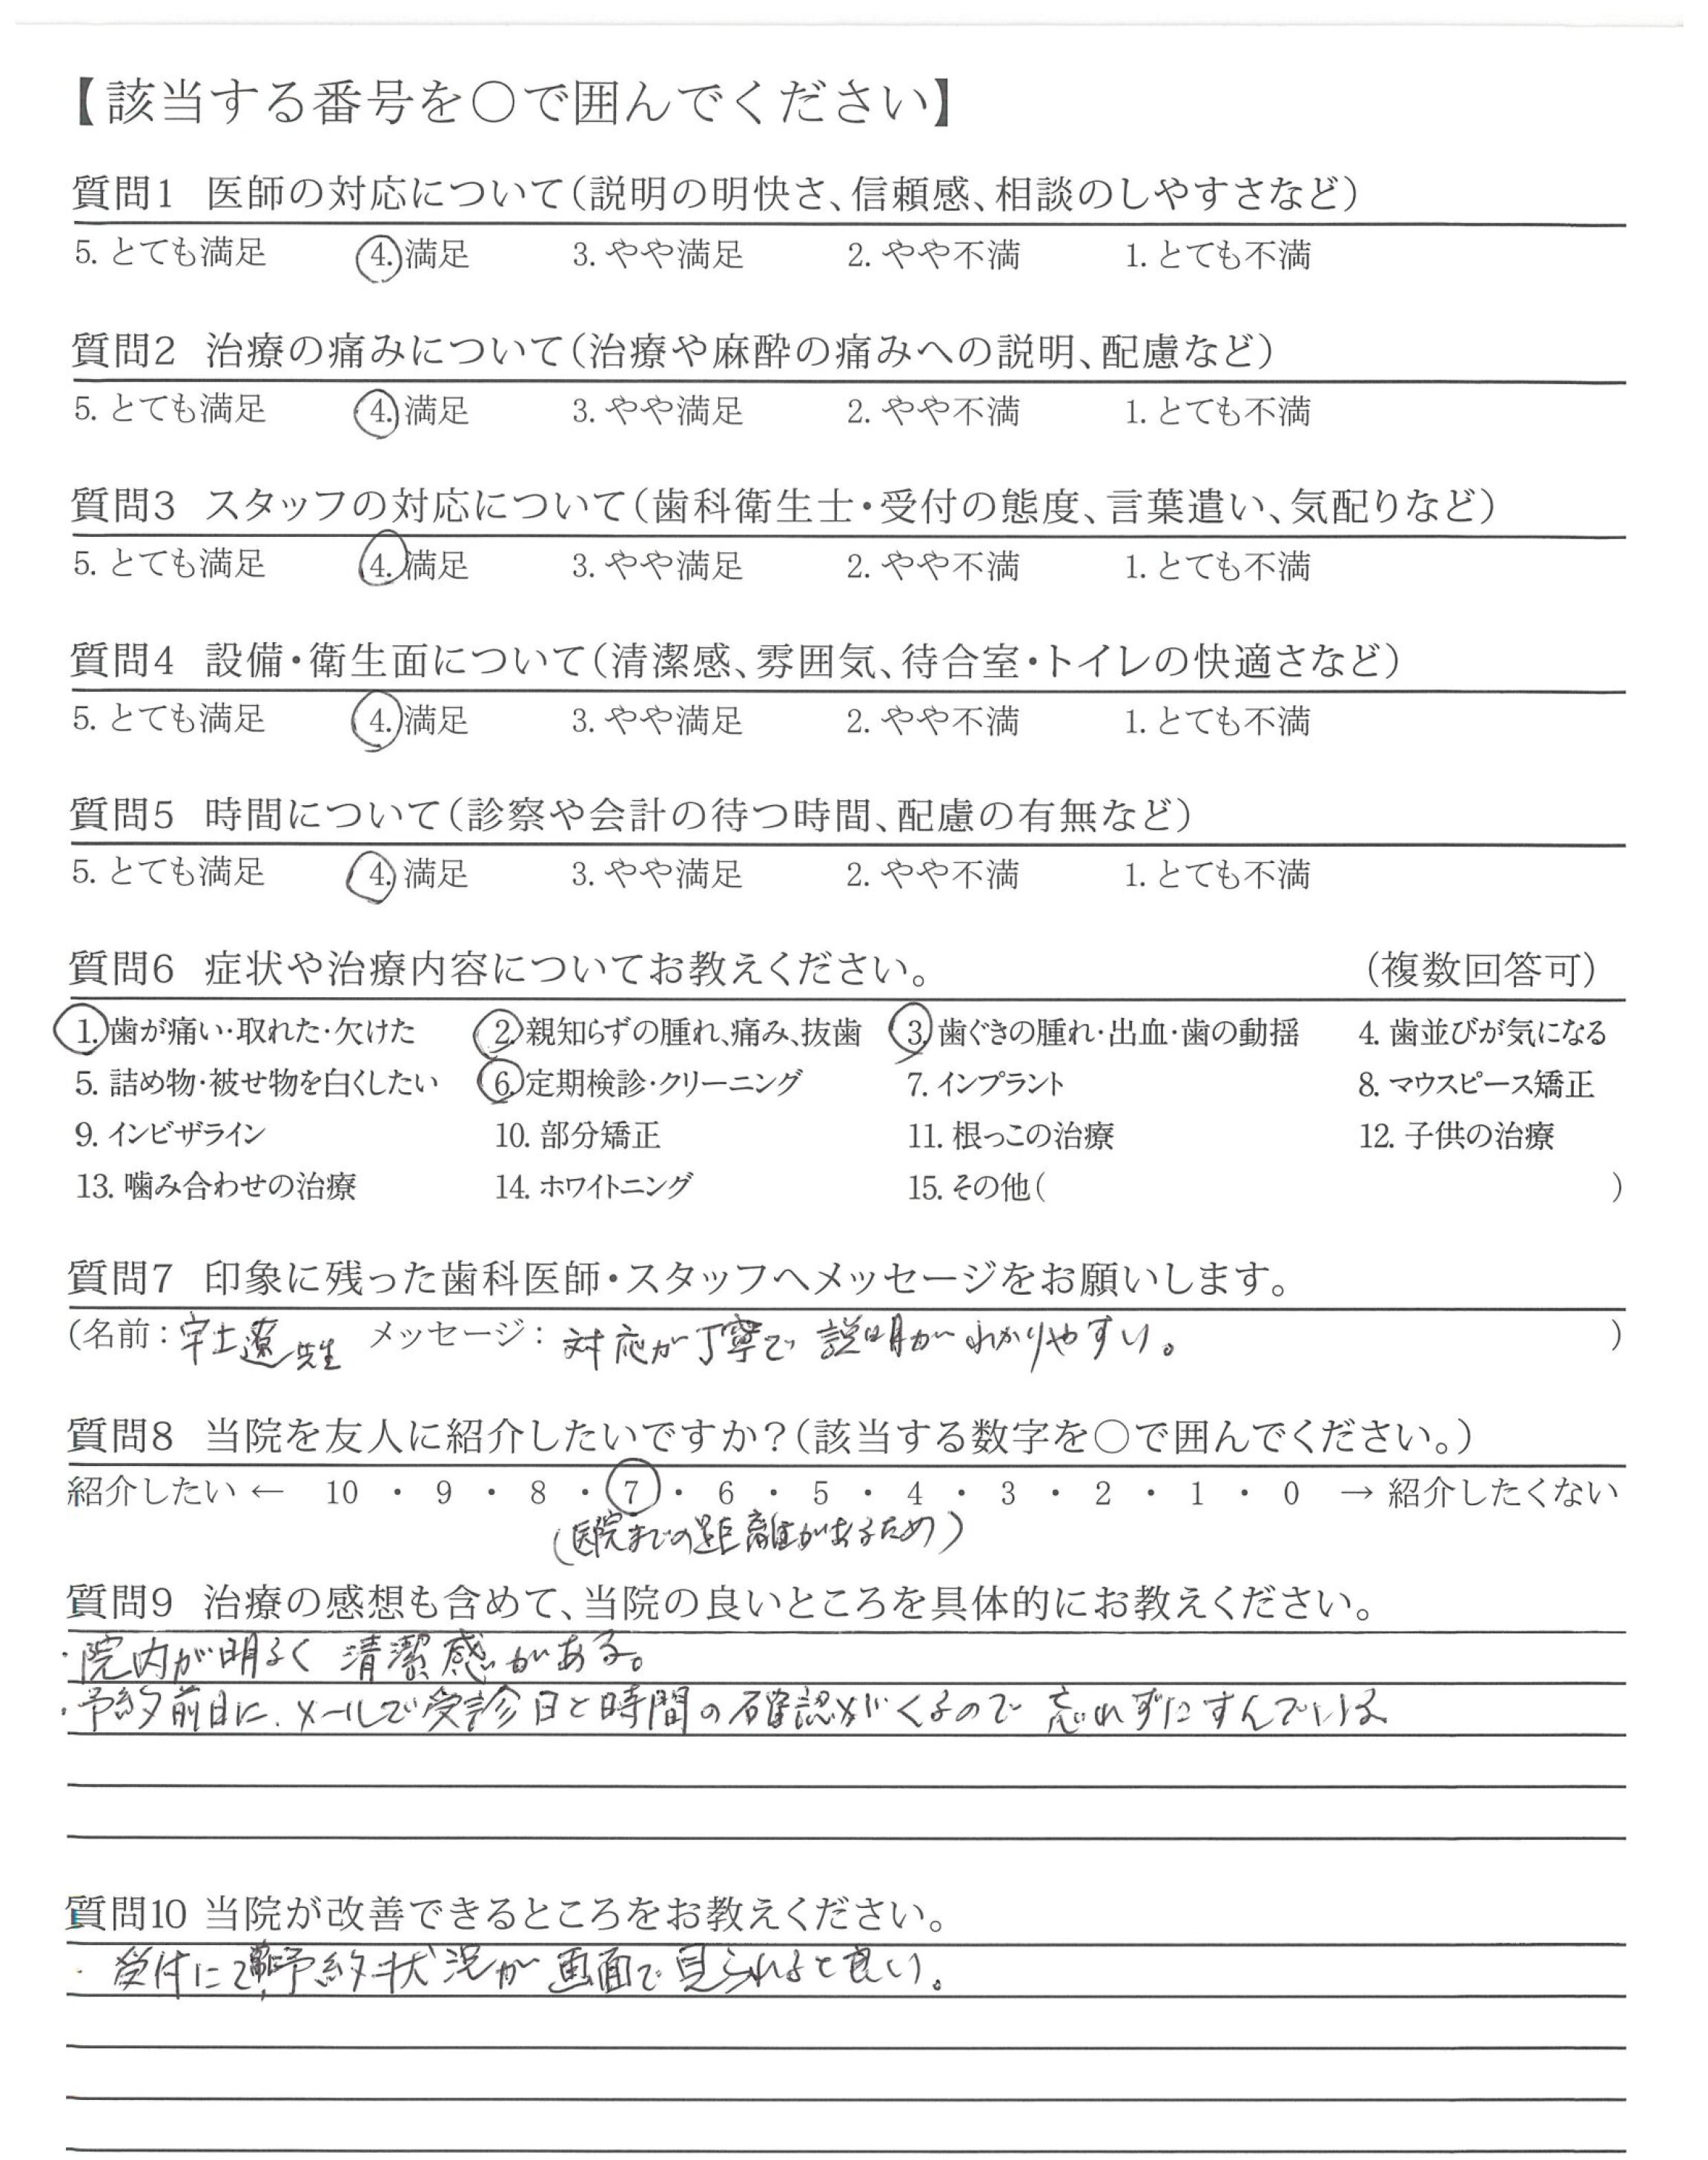 【該当する番号を○で囲んでください】
質問1 医師の対応について(説明の明快さ、信頼感、相談のしやすさなど)
5. とても満足 4. 満足 3. やや満足 2. やや不満 1. とても不満
質問2 治療の痛みについて(治療や麻酔の痛みへの説明、配慮など)
5. とても満足 4. 満足 3. やや満足 2. やや不満 1. とても不満
質問3 スタッフの対応について(歯科衛生士・受付の態度、言葉遣い、気配りなど)
5. とても満足 4. 満足 3. やや満足 2. やや不満 1. とても不満
質問4 設備・衛生面について(清潔感、雰囲気、待合室・トイレの快適さなど)
5. とても満足 4. 満足 3. やや満足 2. やや不満 1. とても不満
質問5 時間について(診察や会計の待つ時間、配慮の有無など)
5. とても満足 4. 満足 3. やや満足 2. やや不満 1. とても不満
質問6 症状や治療内容についてお教えください。 (複数回答可)
1. 歯が痛い・取れた・欠けた 2. 親知らずの腫れ、痛み、抜歯 3. 歯ぐきの腫れ・出血・歯の動揺 4. 歯並びが気になる
5. 詰め物・被せ物を白くしたい 6. 定期検診・クリーニング 7. インプラント 8. マウスピース矯正
9. インビザライン 10. 部分矯正 11. 根っこの治療 12. 子供の治療
13. 噛み合わせの治療 14. ホワイトニング 15. その他( )
質問7 印象に残った歯科医師・スタッフへメッセージをお願いします。
(名前: 宇土遼先生 メッセージ: 対応が丁寧で説明がわかりやすい。 )
質問8 当院を友人に紹介したいですか?(該当する数字を○で囲んでください。)
紹介したい ← 10 ・ 9 ・ 8 ・ 7 ・ 6 ・ 5 ・ 4 ・ 3 ・ 2 ・ 1 ・ 0 → 紹介したくない
(医院までの距離があるため)
質問9 治療の感想も含めて、当院の良いところを具体的にお教えください。
・院内が明るく 清潔感がある。
・予約前日に、メールで受診日と時間の確認がくるので 忘れずにすんでいる
質問10 当院が改善できるところをお教えください。
・受付にて予約状況が 画面で見られると良い。